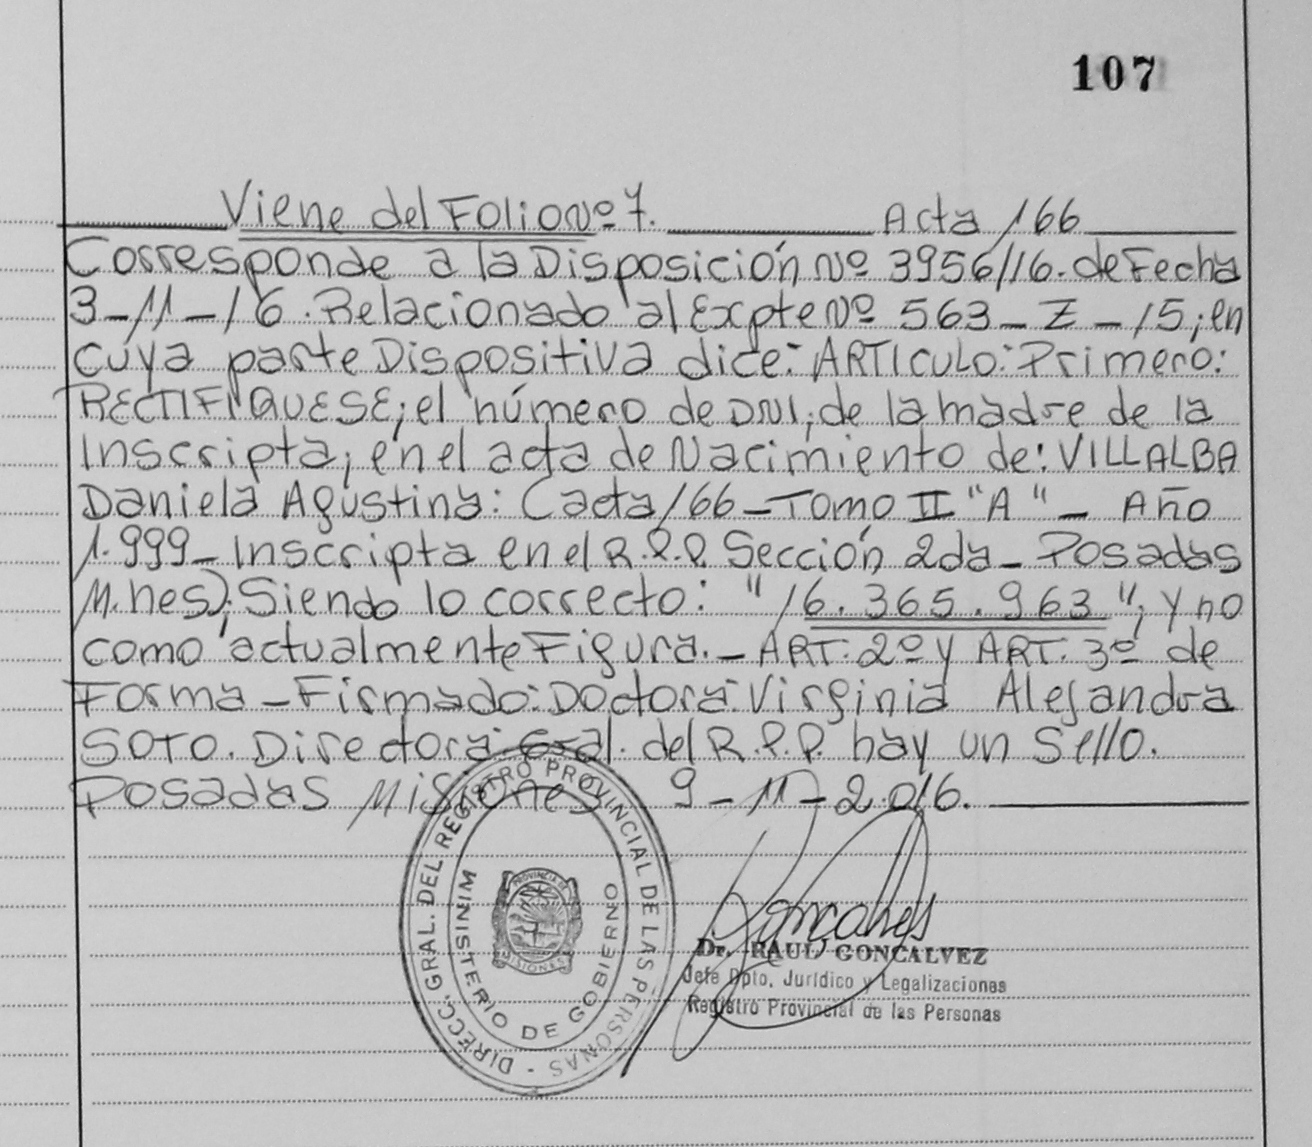 107
Viene del Folio Nº 7. Acta 166
Corresponde a la Disposición Nº 3956/16. de Fecha
3-11-16. Relacionado al Expte Nº 563-Z-15; en
cuya parte Dispositiva dice: ARTICULO: Primero:
RECTIFIQUESE; el número de DNI; de la madre de la
Inscripta; en el acta de Nacimiento de: VILLALBA
Daniela Agustina: (acta 166 - Tomo II "A" - Año
1.999 - Inscripta en el R.P.P. Sección 2da - Posadas
M.nes); Siendo lo correcto: "16.365.963"; y no
como actualmente Figura. - ART: 2º y ART. 3º de
Forma - Firmado: Doctora: Virginia Alejandra
SOTO. Directora Gral. del R.P.P. hay un Sello.
Posadas Misiones 9-11-2016.
DIRECC. GRAL. DEL REGISTRO PROVINCIAL DE LAS PERSONAS -
MINISTERIO DE GOBIERNO
PROVINCIA DE
MISIONES
Dr. RAUL GONCALVEZ
Jefe Dpto. Jurídico y Legalizaciones
Registro Provincial de las Personas